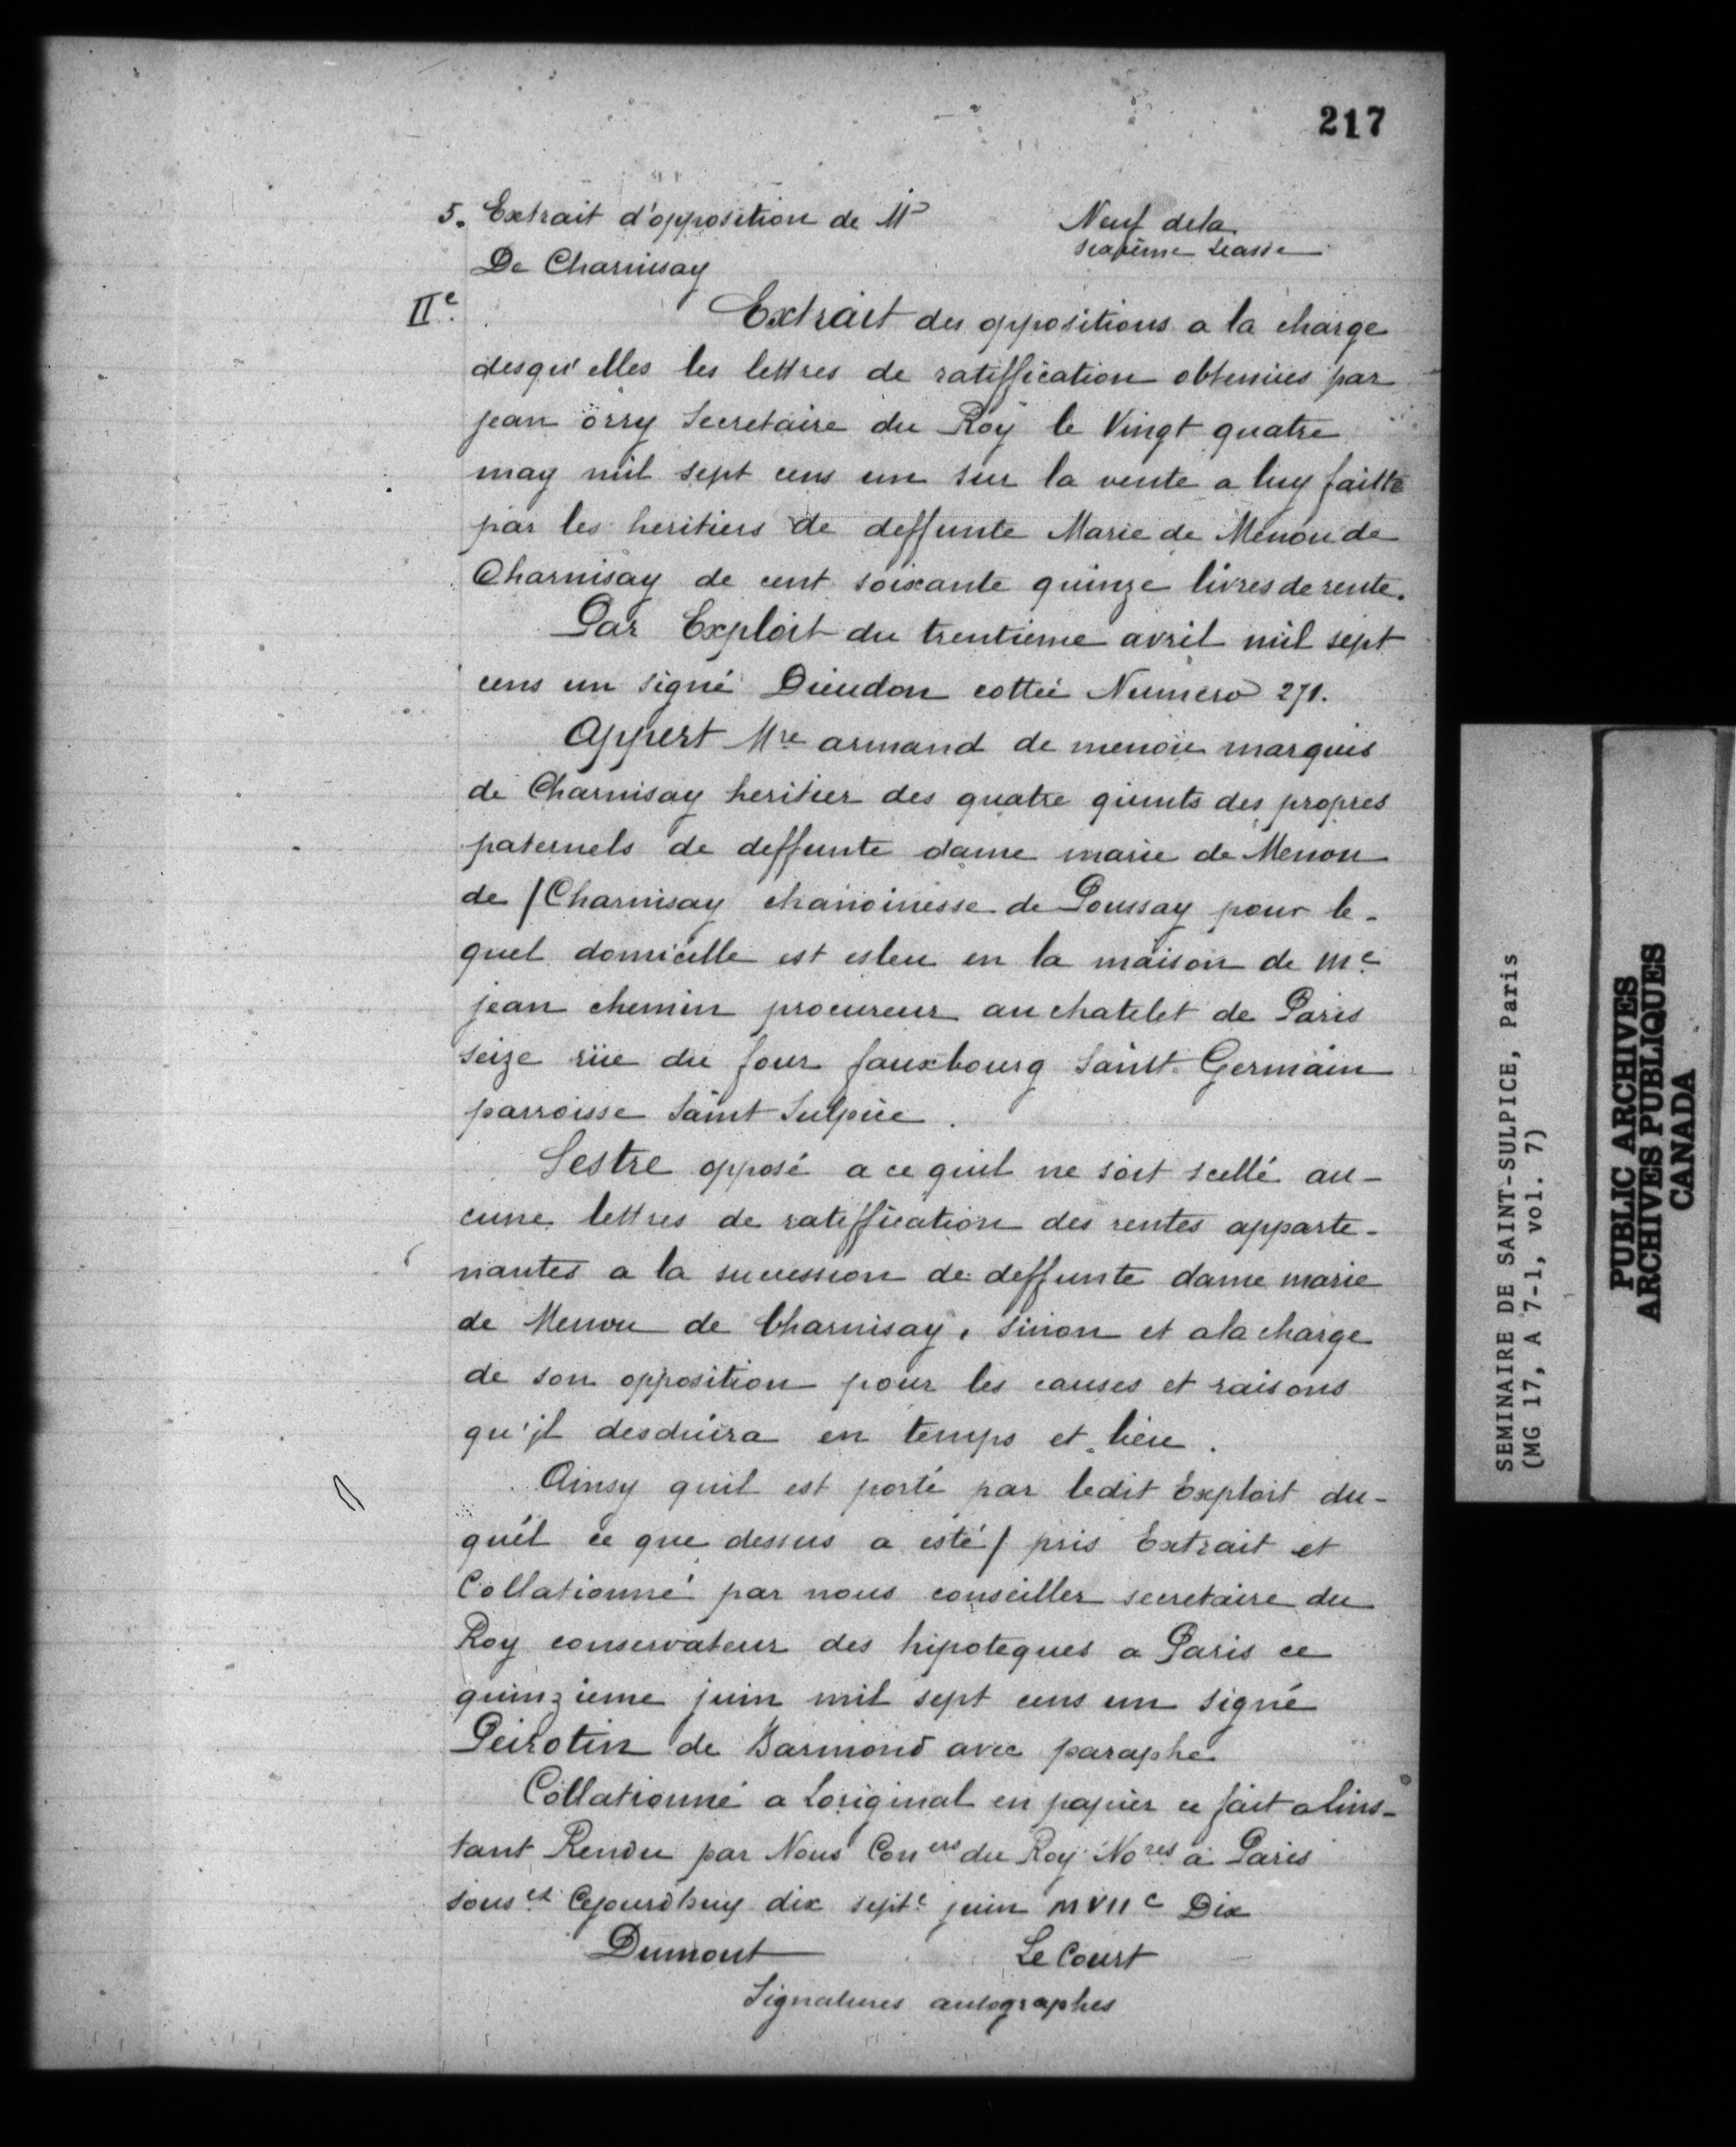 217
5. Extrait d'opposition de Mr
De Charnisay
Neuf dela
sixième Leasse
IIe. Extrait des oppositions a la charge
desqu'elles les lettres de ratiffication obtenües par
jean orry Secretaire du Roy le Vingt quatre
may mil sept cens un sur la vente a luy faitte
par les heritiers de deffunte Marie de Menou de
Charnisay de cent soixante quinze livres de rente.
Par Exploit du trentieme avril mil sept
cens un signé Dieudon cottée Numero 271.
Appert Mre armand de menou marquis
de Charnisay heritier des quatre quints des propres
paternels de deffunte dame marie de Menou
de / Charnisay chanoinesse de Poussay pour le-
quel domicille est esleu en la maison de Me
jean chemin procureur au chatelet de Paris
seize rüe du four fauxbourg Saint Germain
parroisse Saint Sulpice.
Sestre opposé a ce quil ne soit scellé au-
cune lettres de ratiffication des rentes apparte-
nantes a la succession de deffunte dame marie
de Menou de Charnisay, sinon et ala charge
de son opposition pour les causes et raisons
qu'jl desduira en temps et lieu.
Ainsy quil est porté par ledit Exploit du-
quél ce que dessus a esté / pris Extrait et
Collationné par nous conseiller secretaire du
Roy conservateur des hipoteques a Paris ce
quinzieme juin mil sept cens un signé
Peirotin de Barmond avec paraphe
Collationné a Loriginal en papier ce fait alins-
tant Rendu par Nous Coners du Roy Nores a Paris
souset Cejourdhuy dix septe juin MVIIc Dix
Dumont Le Court
Signatures autographes
SEMINAIRE DE SAINT-SULPICE, Paris
(MG 17, A 7-1, vol. 7)
PUBLIC ARCHIVES
ARCHIVES PUBLIQUES
CANADA